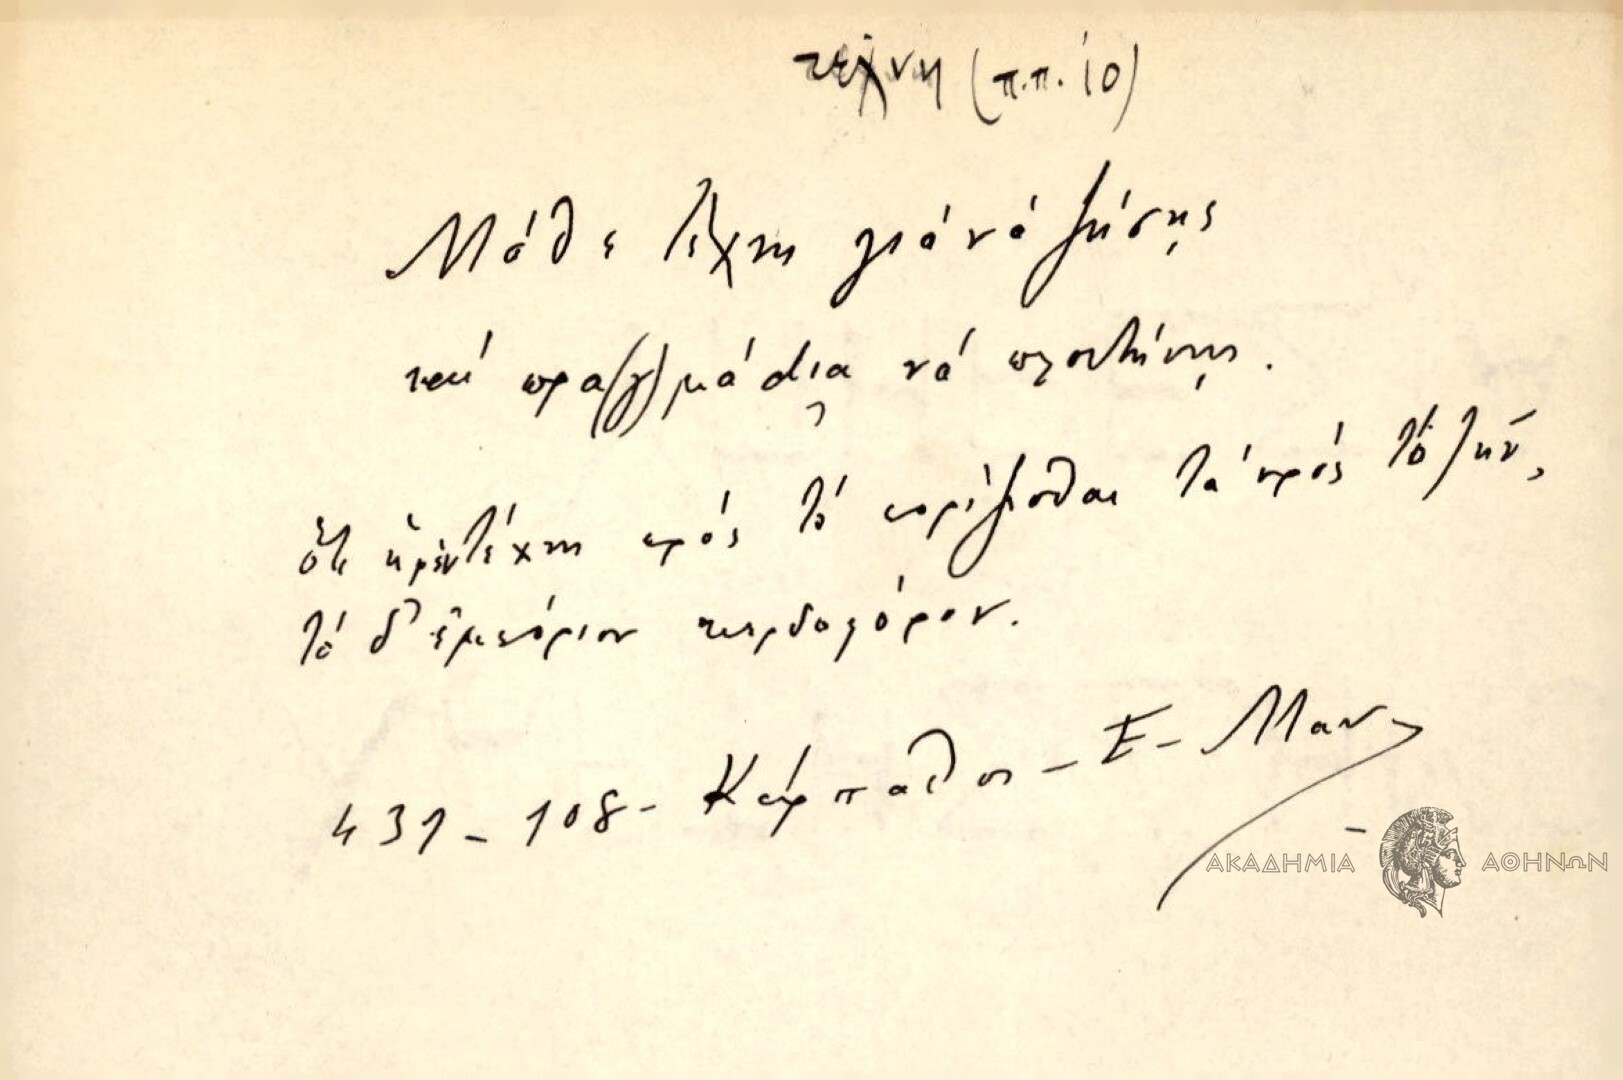 τέχνη (π.π. 10)
Μάθε τέχνη γιά νά ζήσης
καί πρα(γ)μάδια νά πλουτήνης.
ὅτι ἡ μὲν τέχνη πρός τό πορίζεσθαι τά πρός τό ζῆν,
τό δ' ἐμπόριον κερδοφόρον.
431 - 108 - Κάρπαθος - Ε. Μαν
ΑΚΑΔΗΜΙΑ ΑΘΗΝΩΝ